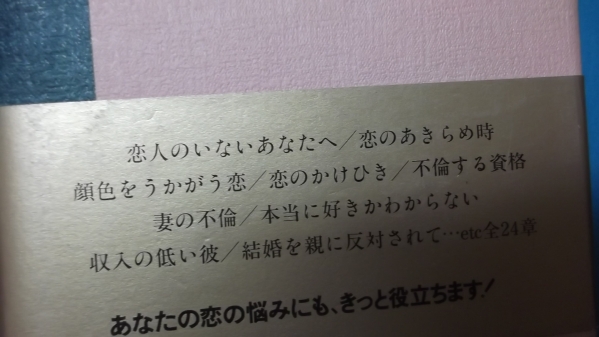 恋人のいないあなたへ/恋のあきらめ時
顔色をうかがう恋/恋のかけひき/不倫する資格
妻の不倫/本当に好きかわからない
収入の低い彼/結婚を親に反対されて…etc全24章
あなたの恋の悩みにも、きっと役立ちます!